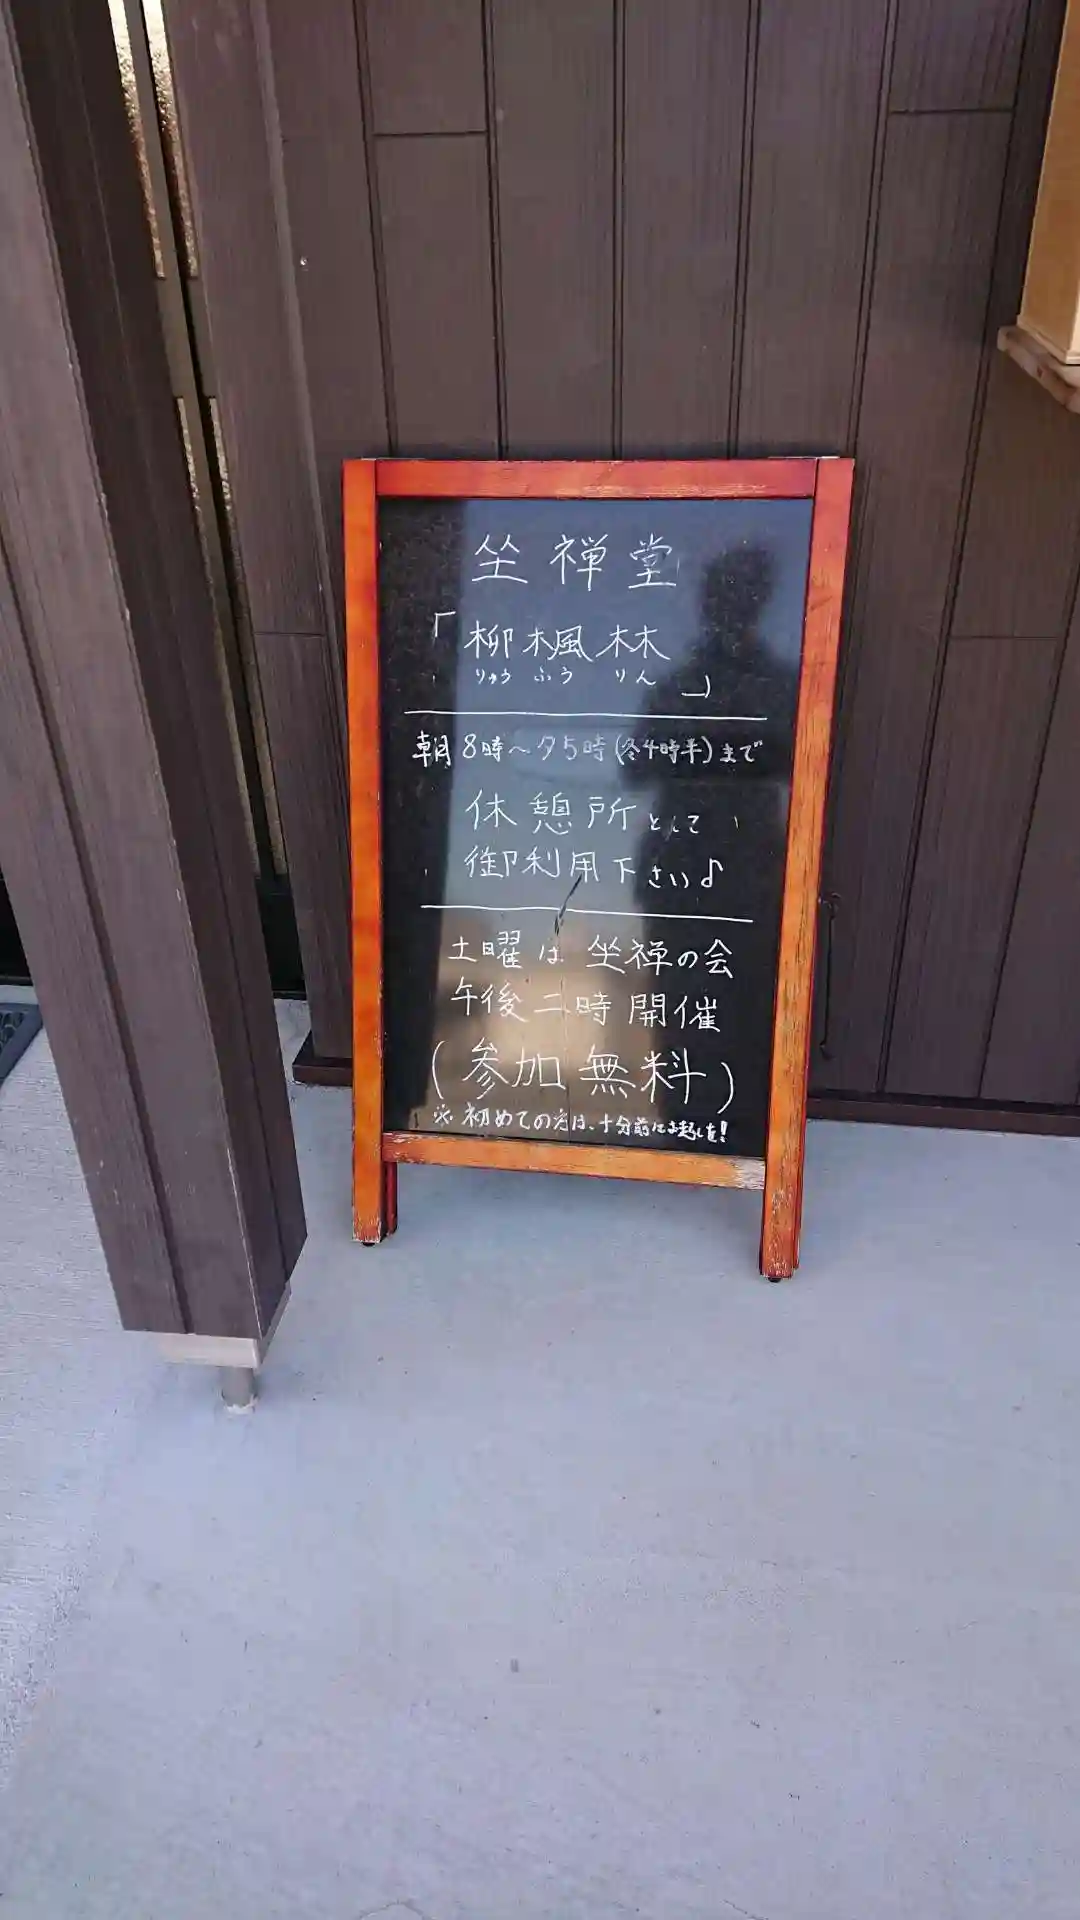 坐禅堂
「柳楓林
りゅう ふう りん 」
朝8時～夕5時(冬4時半)まで
休憩所として
御利用下さい♪
土曜は 坐禅の会
午後二時 開催
(参加無料)
※初めての方は、十分前にお越しを!